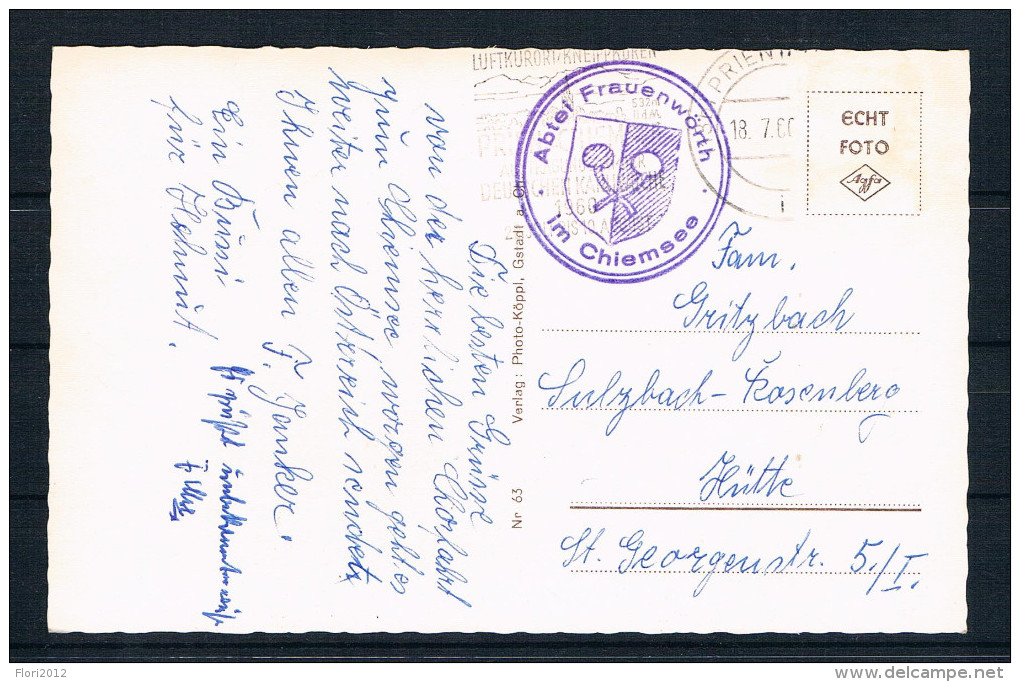 Die besten Grüsse
von der herrlichen Chorfahrt
zum Chiemsee morgen geht es
weiter nach Österreich sendet
Ihnen allen F. Janker.
Ein Bussi
für Helmut.
Nr 63 Verlag: Photo-Köppl, Gstadt a. Ch
LUFTKURORT/KNEIPPKUREN
DEUTSCHEN
1960
PRIEN
18. 7. 60
Abtei Frauenwörth
im Chiemsee
ECHT
FOTO
Agfa
Fam.
Gritzbach
Sulzbach-Rosenberg
Hütte
St. Georgenstr. 5/I.
Flori2012